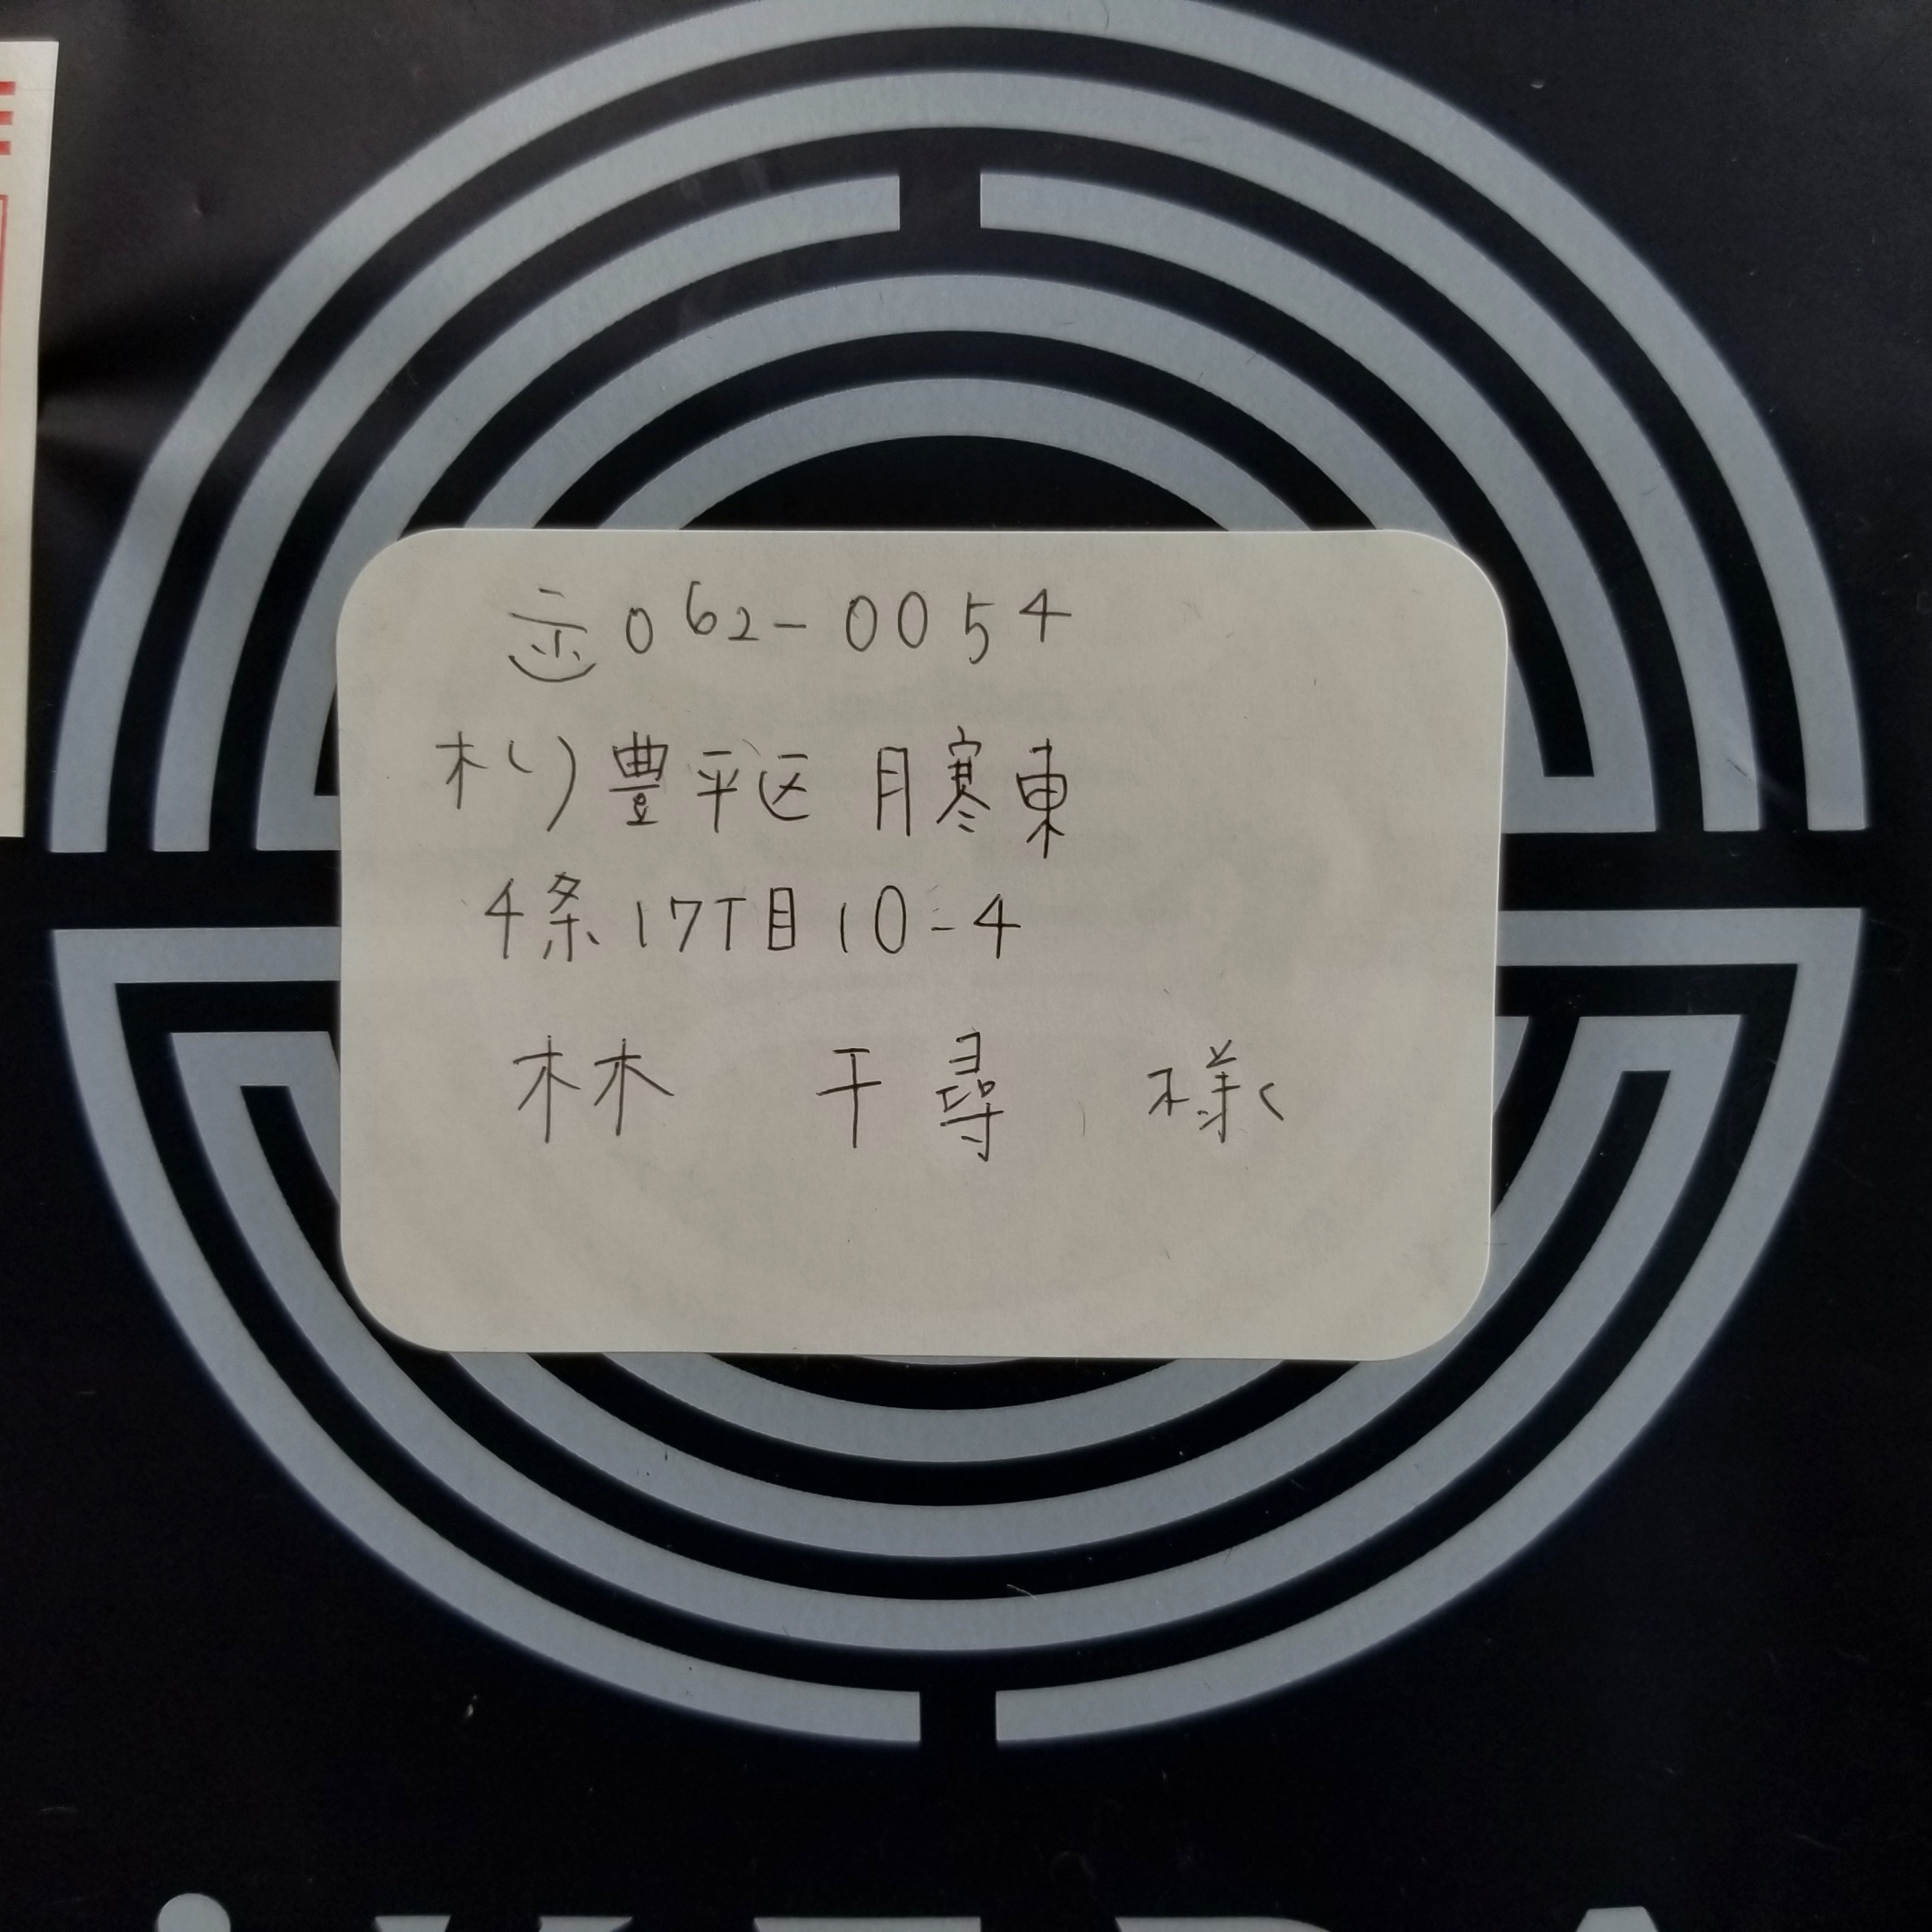 〒062-0054
札)豊平区月寒東
4条17丁目10-4
林 千尋 様